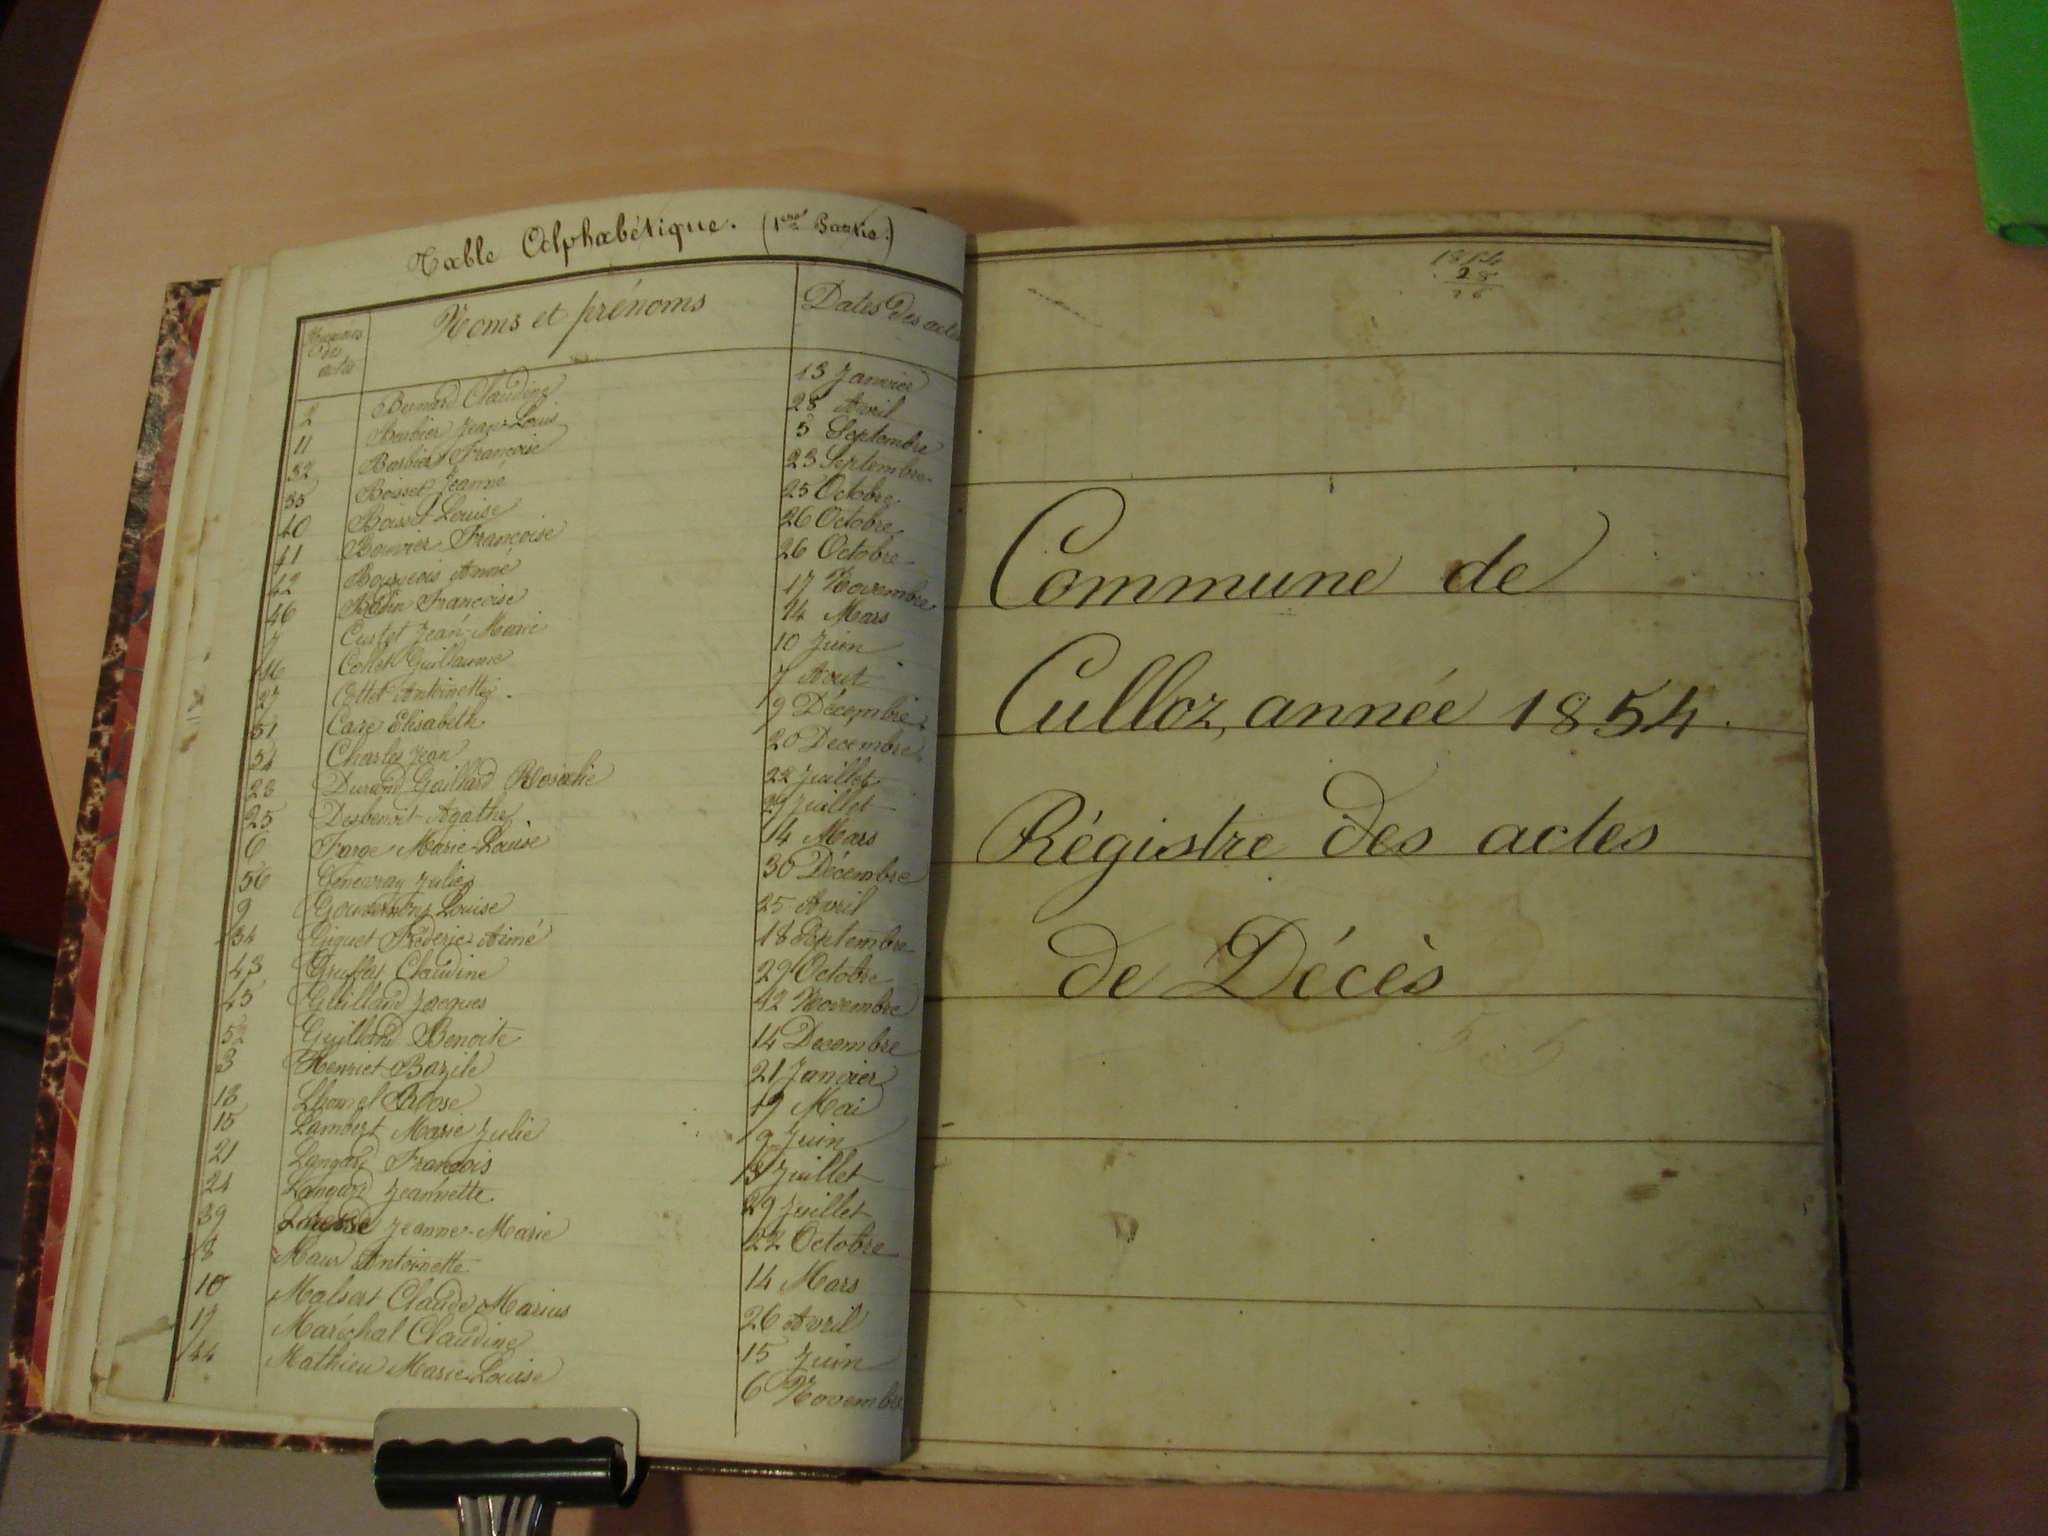 Table Alphabétique. (1ere Partie.)
Numéros des actes Noms et prénoms Dates des actes
2 Bernard Claudine 13 Janvier
11 Barbier Jean-Louis 28 Avril
32 Barbier Françoise 5 Septembre
35 Boisset Jeanne 23 Septembre
40 Boisset Louise 25 Octobre
41 Bouvier Françoise 26 Octobre
42 Bourgeois Anne 26 Octobre
46 Françoise 17 Novembre
7 Jean-Marie 14 Mars
16 Collet Guillaume 10 Juin
27 Collet Antoinette 7 Aout
51 Elisabeth 9 Décembre
54 Charles Jean 20 Décembre
23 Durand Gaillard Rosalie 22 Juillet
25 Desbenoit Agathe 29 Juillet
6 Farge Marie Louise 14 Mars
56 Genevray 30 Décembre
9 Louise 25 Avril
34 Fréderic Aimé 18 Septembre
43 Claudine 29 Octobre
45 Guilland Jacques 12 Novembre
52 Guilland Benoite 14 Decembre
3 Henriet Bazile 21 Janvier
13 19 Mai
15 Lambert Marie Julie 9 Juin
21 François 13 Juillet
24 Jeannette 29 Juillet
39 Jeanne-Marie 22 Octobre
8 Antoinette 14 Mars
10 Malsert Claude Marius 26 Avril
19 Maréchal Claudine 15 Juin
44 Mathieu Marie Louise 6 Novembre
28
Commune de
Culloz, année 1854.
Régistre des actes
de Décès